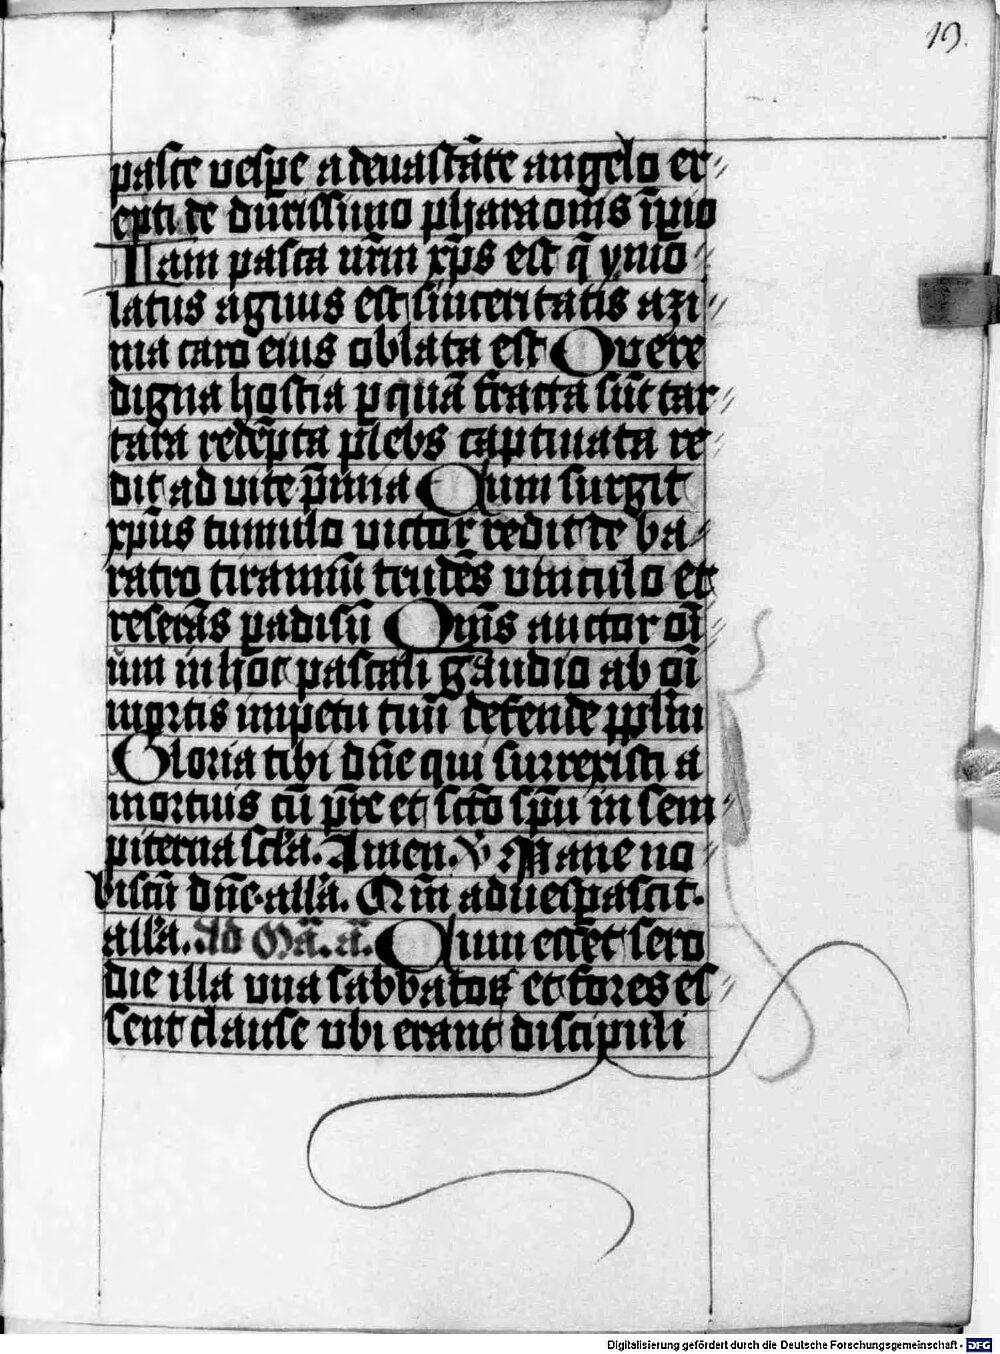 19.
pasce uespe a deuastāte angelo er⸗
epti de durissimo pharaonis īpio
Iam pasca nr̄m xp̄s est q̄ ymo⸗
latus agnus est sinceritatis azi⸗
ma caro eius oblata est O uere
digna hostia p quā fracta sūt tar⸗
tara redēpta plebs captiuata re⸗
dit ad uite p̄mia Cum surgit
xp̄us tumulo uictor redit de ba⸗
ratro tirannū trudēs uinculo et
reserās padisū Qms̄ auctor oī⸗
um in hoc pascali gaudio ab oī
mortis impetu tuū defende pplm̄
Gloria tibi dn̄e qui surrexisti a
mortuis cū pr̄e et sctō spū in sem⸗
piterna scl̄a. Amen. V̄ Mane no⸗
biscū dn̄e all̄a. Qm̄ aduespascit.
all̄a. Ad Mā. ā. Cum esset sero
die illa una sabbatoꝝ et fores es⸗
sent clause vbi erant discipuli
Digitalisierung gefördert durch die Deutsche Forschungsgemeinschaft - DFG